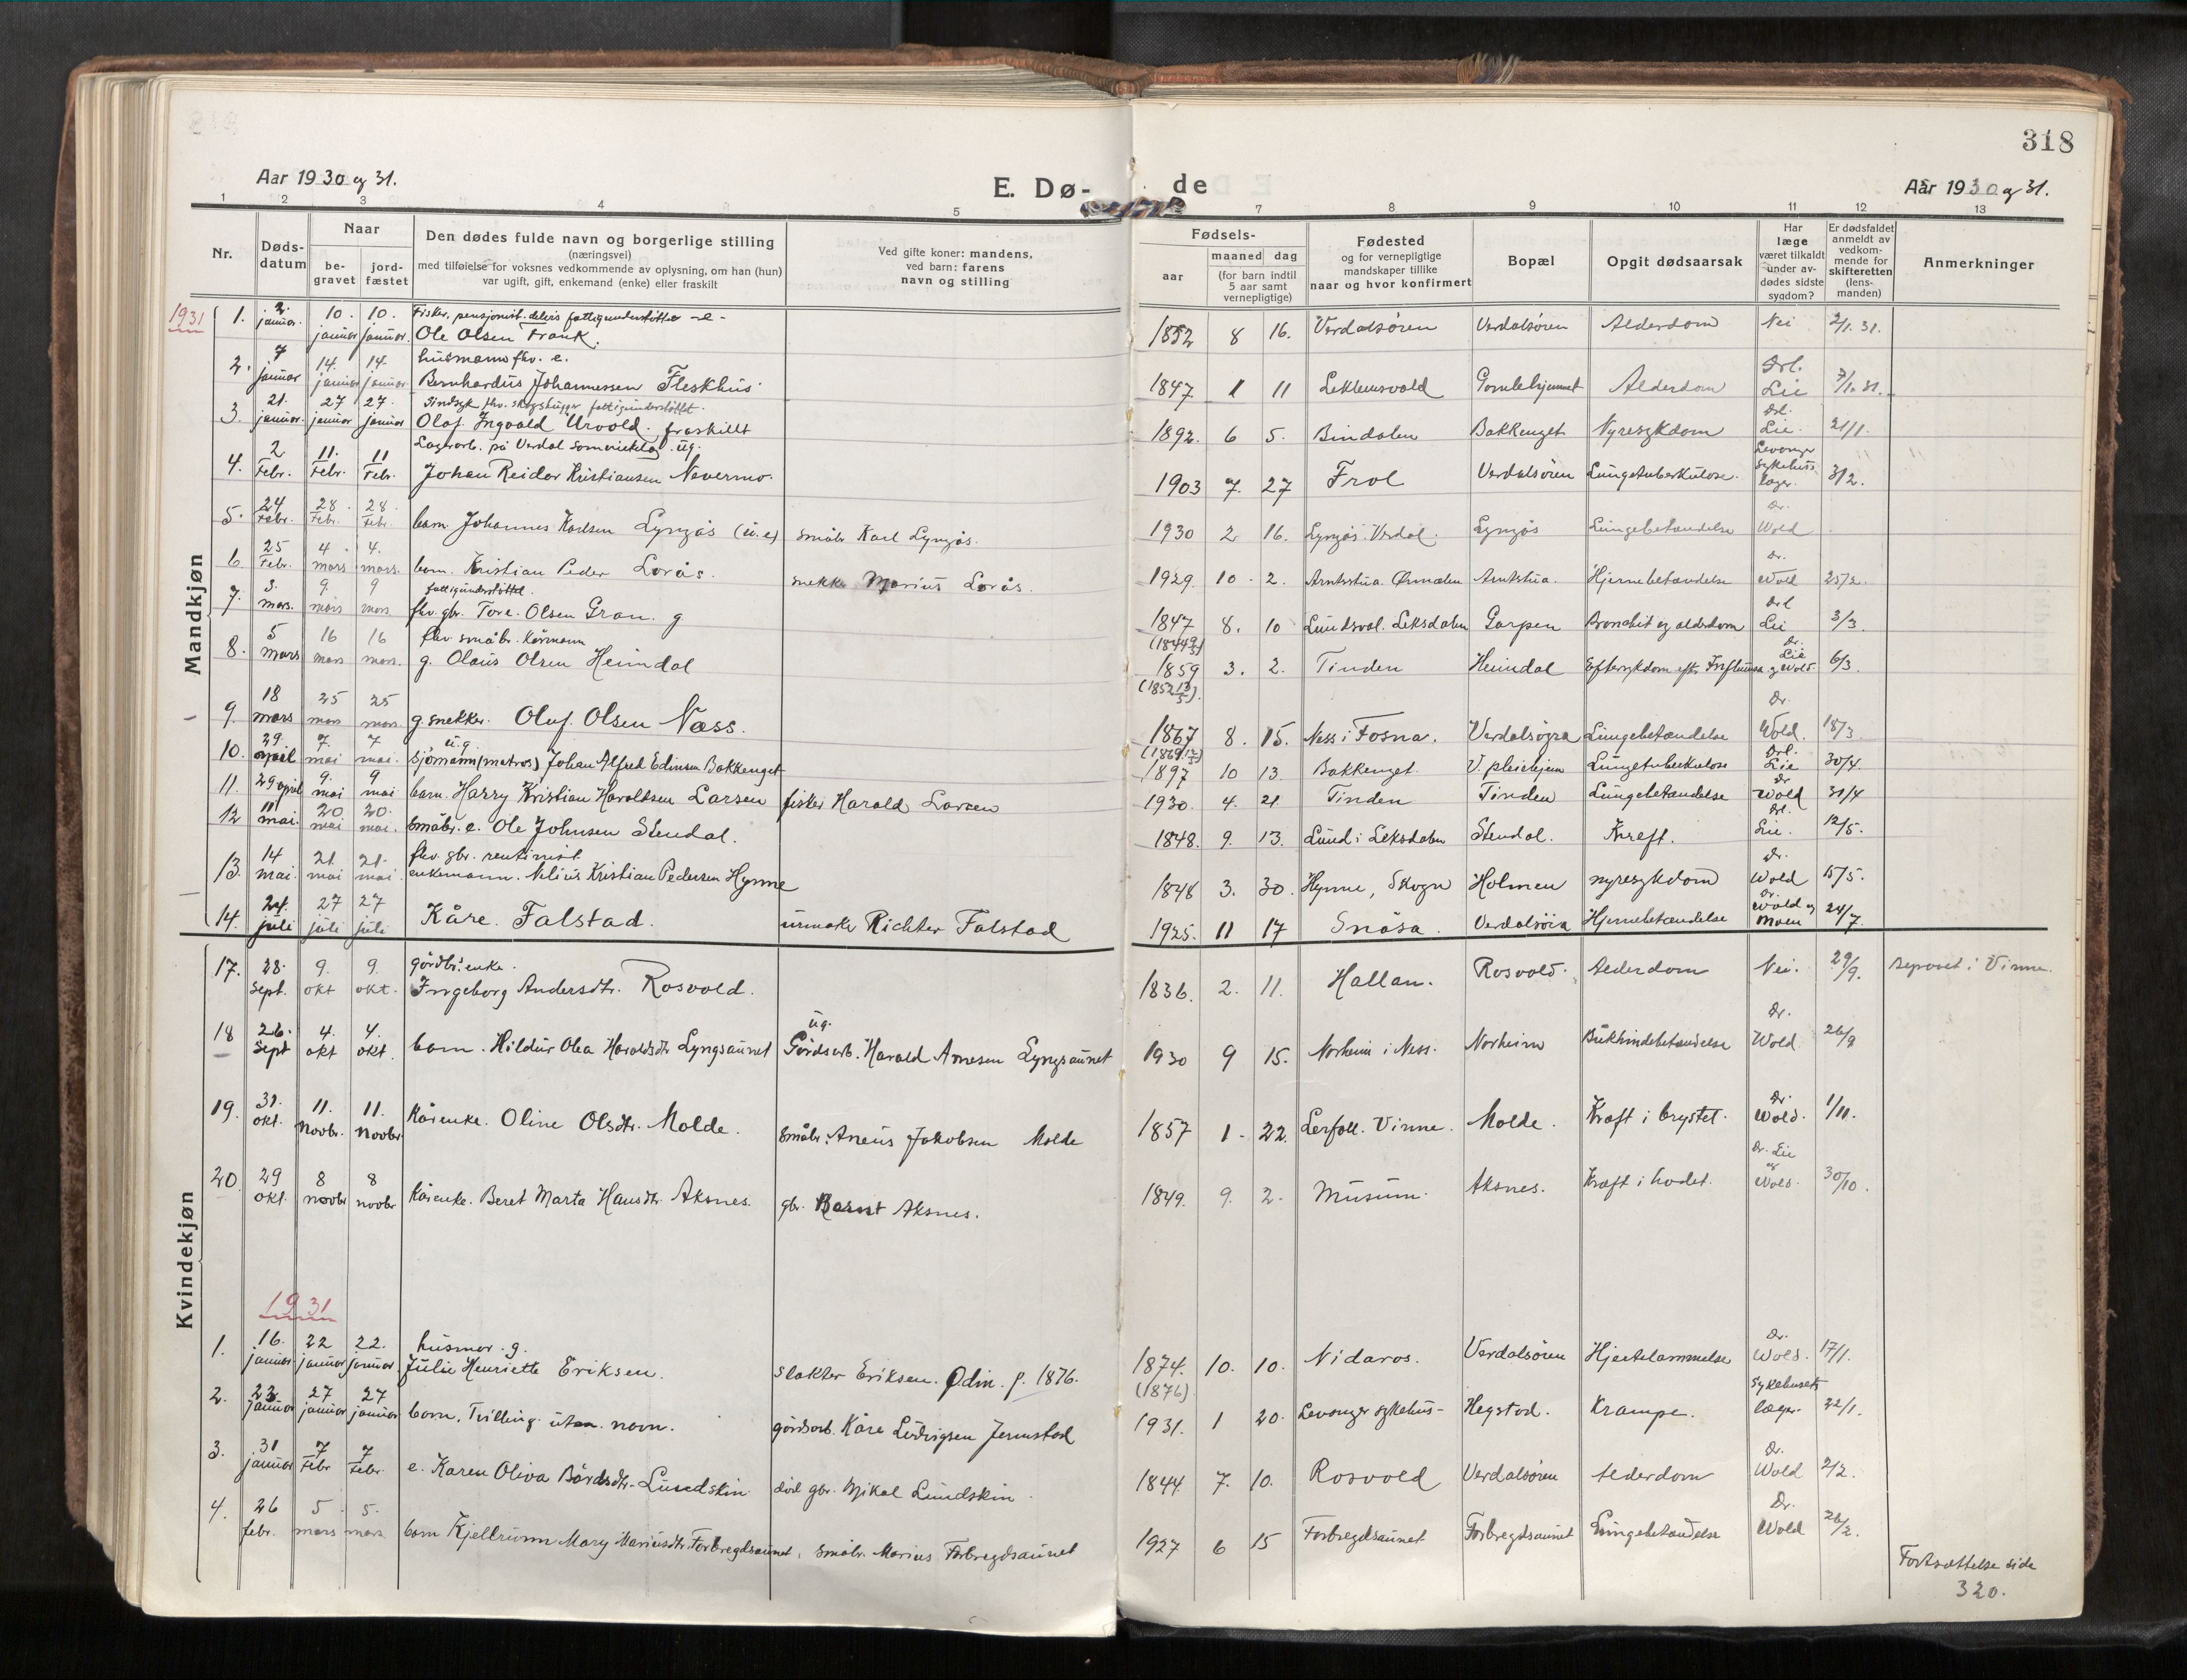 318
Aar 1930 og 31.
E. Dø-
de
Aar 1930 og 31.
1 2 3 4 5 7 8 9 10 11 12 13
Nr.
Døds-
datum
Naar
be-
gravet
jord-
fæstet
Den dødes fulde navn og borgerlige stilling
(næringsvei)
med tilføielse for voksnes vedkommende av oplysning, om han (hun)
var ugift, gift, enkemand (enke) eller fraskilt
Ved gifte koner: mandens,
ved barn: farens
navn og stilling
Fødsels-
aar
maaned dag
(for barn indtil
5 aar samt
vernepligtige)
Fødested
og for vernepligtige
mandskaper tillike
naar og hvor konfirmert
Bopæl
Opgit dødsaarsak
Har
læge
været tilkaldt
under av-
dødes sidste
sygdom?
Er dødsfaldet
anmeldt av
vedkom-
mende for
skifteretten
(lens-
manden)
Anmerkninger
Mandkjøn
1931
Fisker, pensjonist. delvis fattigunderstøttet -e-
1. 2. januar. 10. januar 10. januar. Ole Olsen Frank. 1852 8 16. Verdalsøren Verdalsøren Alderdom Nei 2/1. 31.
husmann fhv. e.
2. 7 januar 14. januar 14. januar. Bernhardus Johannessen Fleskhus. 1847 1 11 Leklemsvald Gamlehjemmet Alderdom Drl. Lie 7/1. 31.
Sindsyk fhv. skogshugger fattigunderstøttet.
3. 21. januar. 27 januar 27. januar Olaf Ingvald Urvold. fraskillt 1892. 6 5. Bindalen Bakkenget Nyresykdom Drl. Lie. 21/1.
Lagerarb. på Verdal Samvirkelag. ug.
4. 2 Febr. 11. Febr. 11 Febr. Johan Reidar Kristiansen Nevermo. 1903 7. 27 Frol Verdalsøren Lungetuberkulose. Levanger sykehus læger. 3/2.
5. 24 Febr. 28. Febr. 28. Febr. barn Johannes Karlsen Lyngås (u.e) småbr Karl Lyngås. 1930 2 16. Lyngås. Verdal. Lyngås Lungebetændelse Dr. Wold
6. 25 Febr. 4. mars 4. mars. barn. Kristian Peder Lorås. snekker Marius Lorås. 1929. 10. 2. Arntsstua. Ørmælen Arntstua. Hjernebetændelse Dr. Wold 25/2.
fattigunderstøttet.
7. 3. mars. 9. mars 9 mars fhv. gbr. Tore Olsen Gran. g 1847 8. 10 Lundsval. Leksdalen Garpen Bronchit og alderdom Drl Lie 3/3
fhv småbr. kårmann
8. 5 mars 16 mars 16 mars. g. Olaus Olsen Heimdal 1859 3. 2. Tinden Heimdal Eftersykdom efter Influensa Dr. Lie og Wold 6/3
9. 18 mars 25 mars 25 mars. g. snekker. Oluf Olsen Næss. 1867 8. 15. Ness i Fosna. Verdalsøra Lungebetændelse Dr. Wold. 18/3
ug
10. 29. april 7. mai 7 mai. Sjømann (matros) Johan Alfred Edinsen Bakkenget 1897 10 13. Bakkenget. V. pleiehjem Lungetuberkulose Drl. Lie 30/4.
11. 29 april 9. mai 9 mai barn. Harry Kristian Haroldsen Larsen fisker Harald Larsen 1930. 4. 21. Tinden Tinden Lungebetændelse Dr Wold 31/4
12 11 mai. 20 mai 20. mai. Småbr. e. Ole Johnsen Stendal. 1848. 9. 13. Lund i Leksdalen Stendal. Kreft. Drl. Lie. 12/5.
fhv. gbr. rentenist
13. 14 mai. 21. mai 21. mai enkemann. Nelius Kristian Pedersen Hynne 1848 3. 30. Hynne, Skogn Holmen nyresykdom Dr. Wold 15/5.
14. 24. juli 27 juli 27 juli Kåre. Falstad. urmaker Richter Falstad 1925. 11 17 Snåsa. Verdalsøra Hjernebetændelse Dr. Wold og Moen 24/7.
Kvindekjøn
gårdbr. enke.
17. 28. Sept. 9. okt 9. okt. Ingeborg Andersdtr. Rosvold. 1836. 2. 11. Hallan. Rosvold. Alderdom Nei. 29/9. Begravet i Vinne.
ug.
18 26. Sept 4. okt 4. okt. barn. Hildur Olea Haroldsdtr Lyngsaunet Gårdsarb. Harald Arnesen Lyngsaunet 1930 9 15. Norheim i Ness. Norheim Bukhindebetændelse Dr. Wold. 26/9
19. 31. okt. 11. novbr. 11. novbr Kårenke. Oline Olsdtr. Molde. Småbr. Aneus Jakobsen Molde 1857 1. 22. Lerfall. Vinne. Molde. Kræft i brystet. Dr. Wold. 1/11.
20. 29 okt. 8 novbr 8 novbr Kårenke. Beret Marta Hansdtr. Aksnes. gbr. Bernt Aksnes. 1849. 9. 2. Musum. Aksnes. Kræft i hodet. Dr. Lie og Wold. 30/10.
1931
husmor. g.
1. 16. januar 22 januar 22. januar. Julie Henriette Eriksen. Slakter Eriksen. Odin. f. 1876. 1874. (1876). 10. 10. Nidaros. Verdalsøren Hjertelammelse Dr. Wold. 17/1.
2. 22. januar 27 januar 27 januar barn. Tvilling uten navn. gårdsarb. Kåre Ludvigsen Jermstad 1931. 1 20. Levanger sykehus- Hegstad. Krampe. Sykehusets læger. 22/1.
3. 31 januar 7 Febr 7 Febr. e. Karen Oliva Bårdsdtr. Lundskin død gbr. Mikal Lundskin. 1844. 7. 10. Rosvold Verdalsøren Alderdom Dr. Wold 2/2.
4. 26 febr. 5 mars 5. mars barn Kjellrunn Mary Mariusdtr. Forbregdsaunet, småbr. Marius Forbregdsaunet 1927 6 15 Forbregdsaunet Forbregdsaunet Lungebetændelse Dr. Wold 26/2.
Fortsættelse side
320.